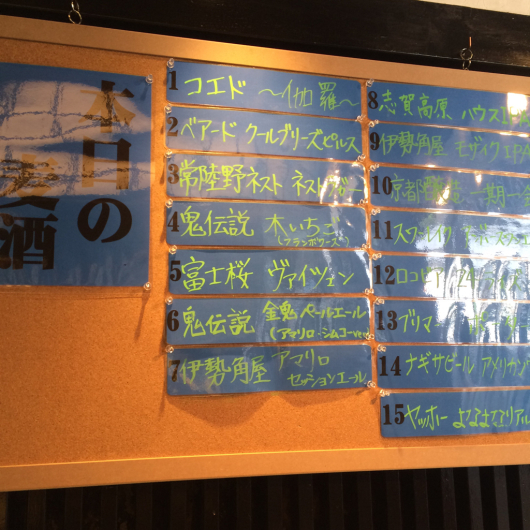 本日の
麦酒
1 コエド 〜伽羅〜
2 ベアード クールブリーズピルス
3 常陸野ネスト ネスト
4 鬼伝説 木いちご
(フランボワーズ)
5 富士桜 ヴァイツェン
6 鬼伝説 金鬼ペールエール
(アマリロ・シムコーver)
7 伊勢角屋 アマリロ
セッションエール
8 志賀高原 ハウス
9 伊勢角屋 モザイクIPA
10 京都醸造 一期一
11 スワンレイク
12 ロコビア
13 プリマ
14 ナギサビール アメリカン
15 ヤッホー よなよなリアル